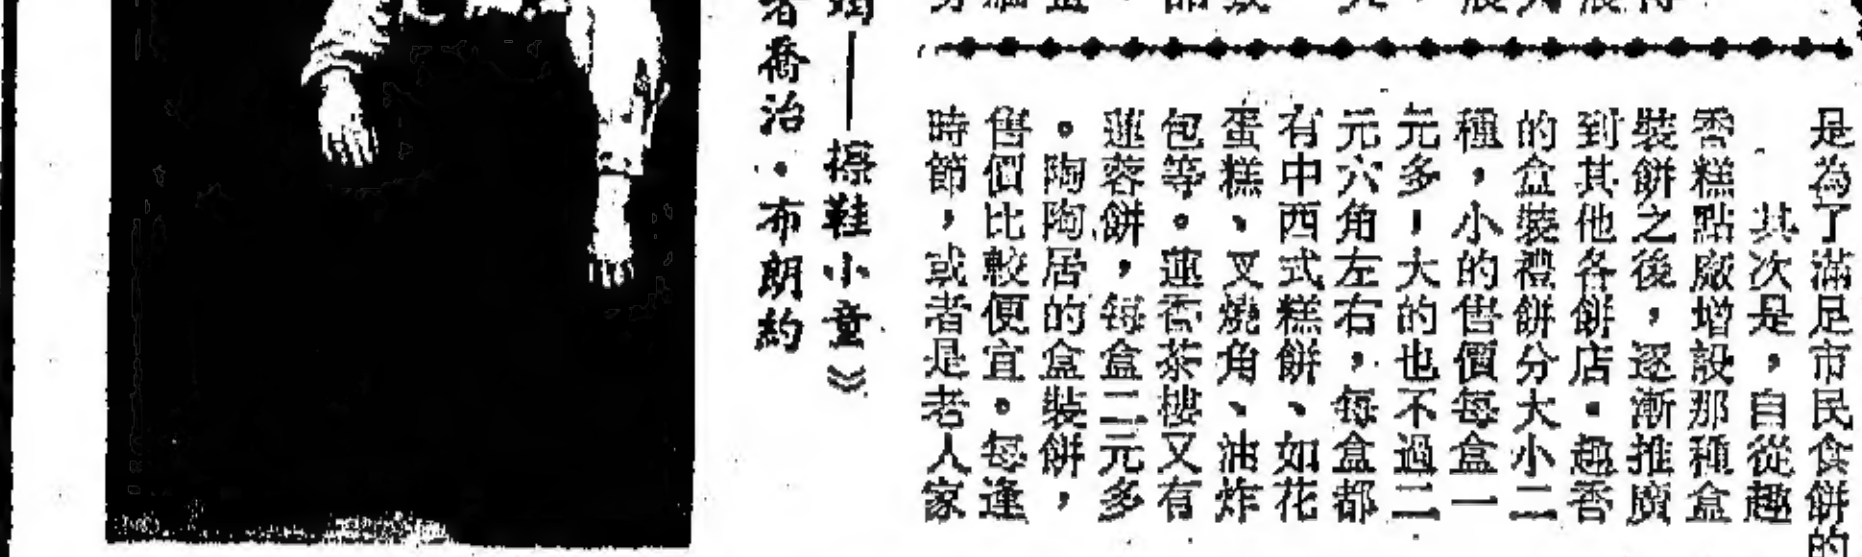 是為了滿足市民食餅的
其次是，自從趣
香糕點廠增設那種盒
裝餅之後，逐漸推廣
到其他各餅店。趣香
的盒裝禮餅分大小二
種，小的售價每盒一
元多，大的也不過二
元六角左右，每盒都
有中西式糕餅、如花
蛋糕、叉燒角、油炸
包等。蓮香茶樓又有
蓮蓉餅，每盒二元多
。陶陶居的盒裝餅，
售價比較便宜。每逢
時節，或者是老人家
——擦鞋小童》
喬治·布朗約